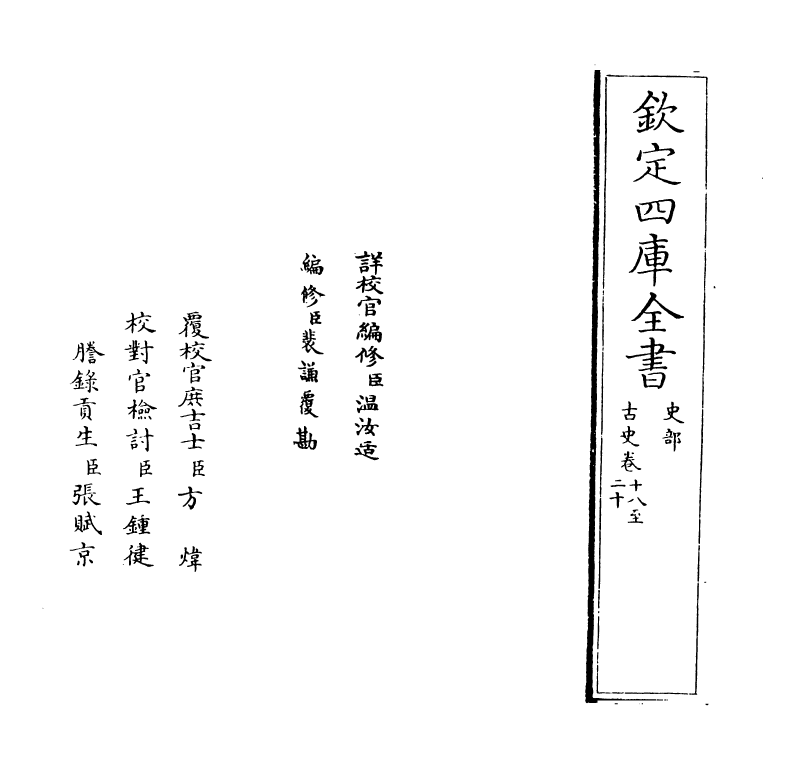 欽定四庫全書
史部
古史卷十八至二十
詳校官編修臣温汝适
編修臣裴謙覆勘
覆校官庶吉士臣方煒
校對官檢討臣王鍾健
謄錄貢生臣張賦京